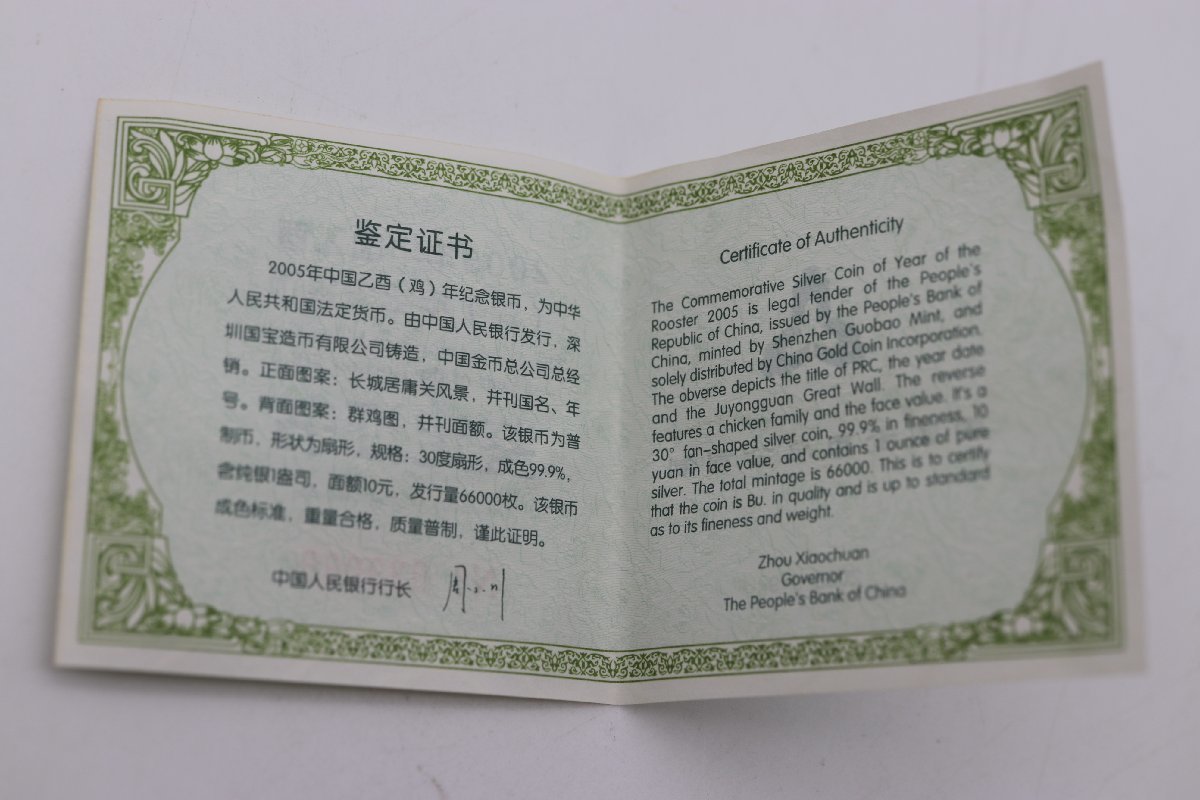 鉴定证书
2005年中国乙酉（鸡）年纪念银币，为中华
人民共和国法定货币。由中国人民银行发行，深
圳国宝造币有限公司铸造，中国金币总公司总经
销。正面图案：长城居庸关风景，并刊国名、年
号。背面图案：群鸡图，并刊面额。该银币为普
制币，形状为扇形，规格：30度扇形，成色99.9%，
含纯银1盎司，面额10元，发行量66000枚。该银币
成色标准，重量合格，质量普制，谨此证明。
中国人民银行行长
Certificate of Authenticity
The Commemorative Silver Coin of Year of the
Rooster 2005 is legal tender of the People's
Republic of China, issued by the People's Bank of
China, minted by Shenzhen Guobao Mint, and
solely distributed by China Gold Coin Incorporation.
The obverse depicts the title of PRC, the year date
and the Juyongguan Great Wall. The reverse
features a chicken family and the face value. It's a
30° fan-shaped silver coin, 99.9% in fineness, 10
yuan in face value, and contains 1 ounce of pure
silver. The total mintage is 66000. This is to certify
that the coin is Bu. in quality and is up to standard
as to its fineness and weight.
Zhou Xiaochuan
Governor
The People's Bank of China